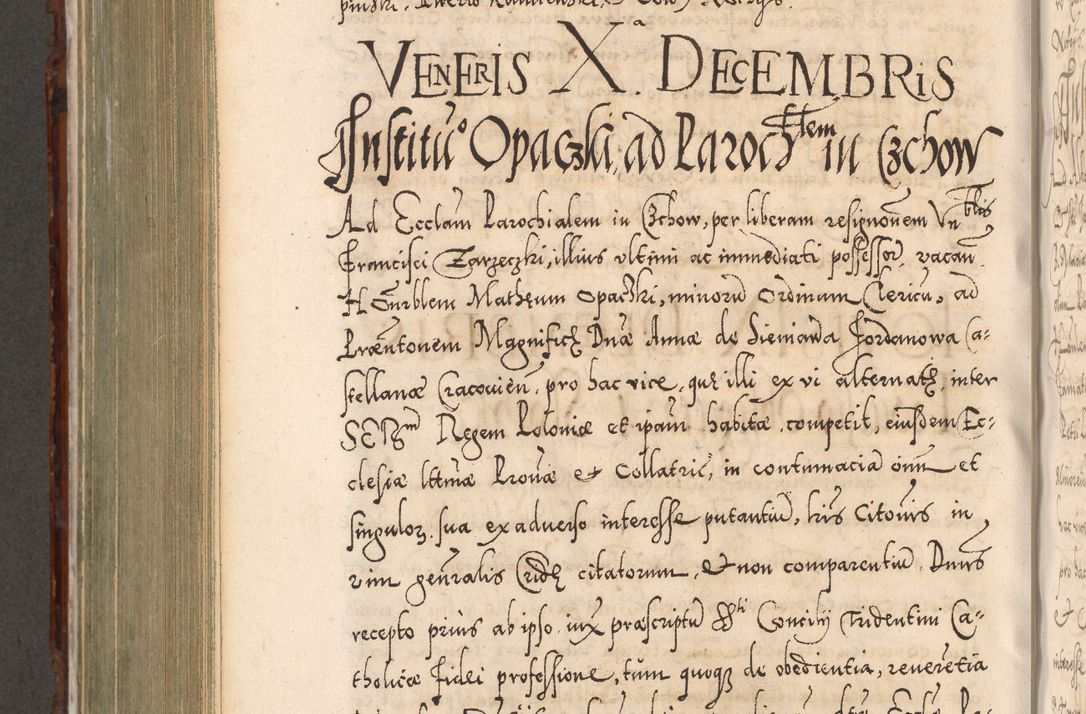 VENERIS Xa. DECEMBRIS
Institutio Opaczki, ad Parochialem in Czchow
Ad Ecclam Parochialem in Czchow, per liberam resignonem Vnblis
Francisci Zarzeczki, illius vltimi ac immediati possessor. vacan.
Honrblem Matheum Opaczki, minorū Ordinum Clericū, ad
Præentonem Magnificæ Dnæ Annæ de Sieniawa Jordanowa Ca-
stellanæ Cracouien. pro hac vice, quę illi ex vi alternatę, inter
SERmm Regem Poloniæ et ipam habitæ, competit, eiusdem Ec-
clesiæ lttmæ Pronæ et Collatric., in contumaciā oīum et
singulorum sua ex aduerso interesse putantiū, lris Citoris in
vim generalis Cridę citatorum, & non comparentiū, Dnus
recepto prius ab ipso iux præscriptū Sti Concilij Tridentini Ca-
tholicæ fidei professione, tum quoque de obedientia, reueretia